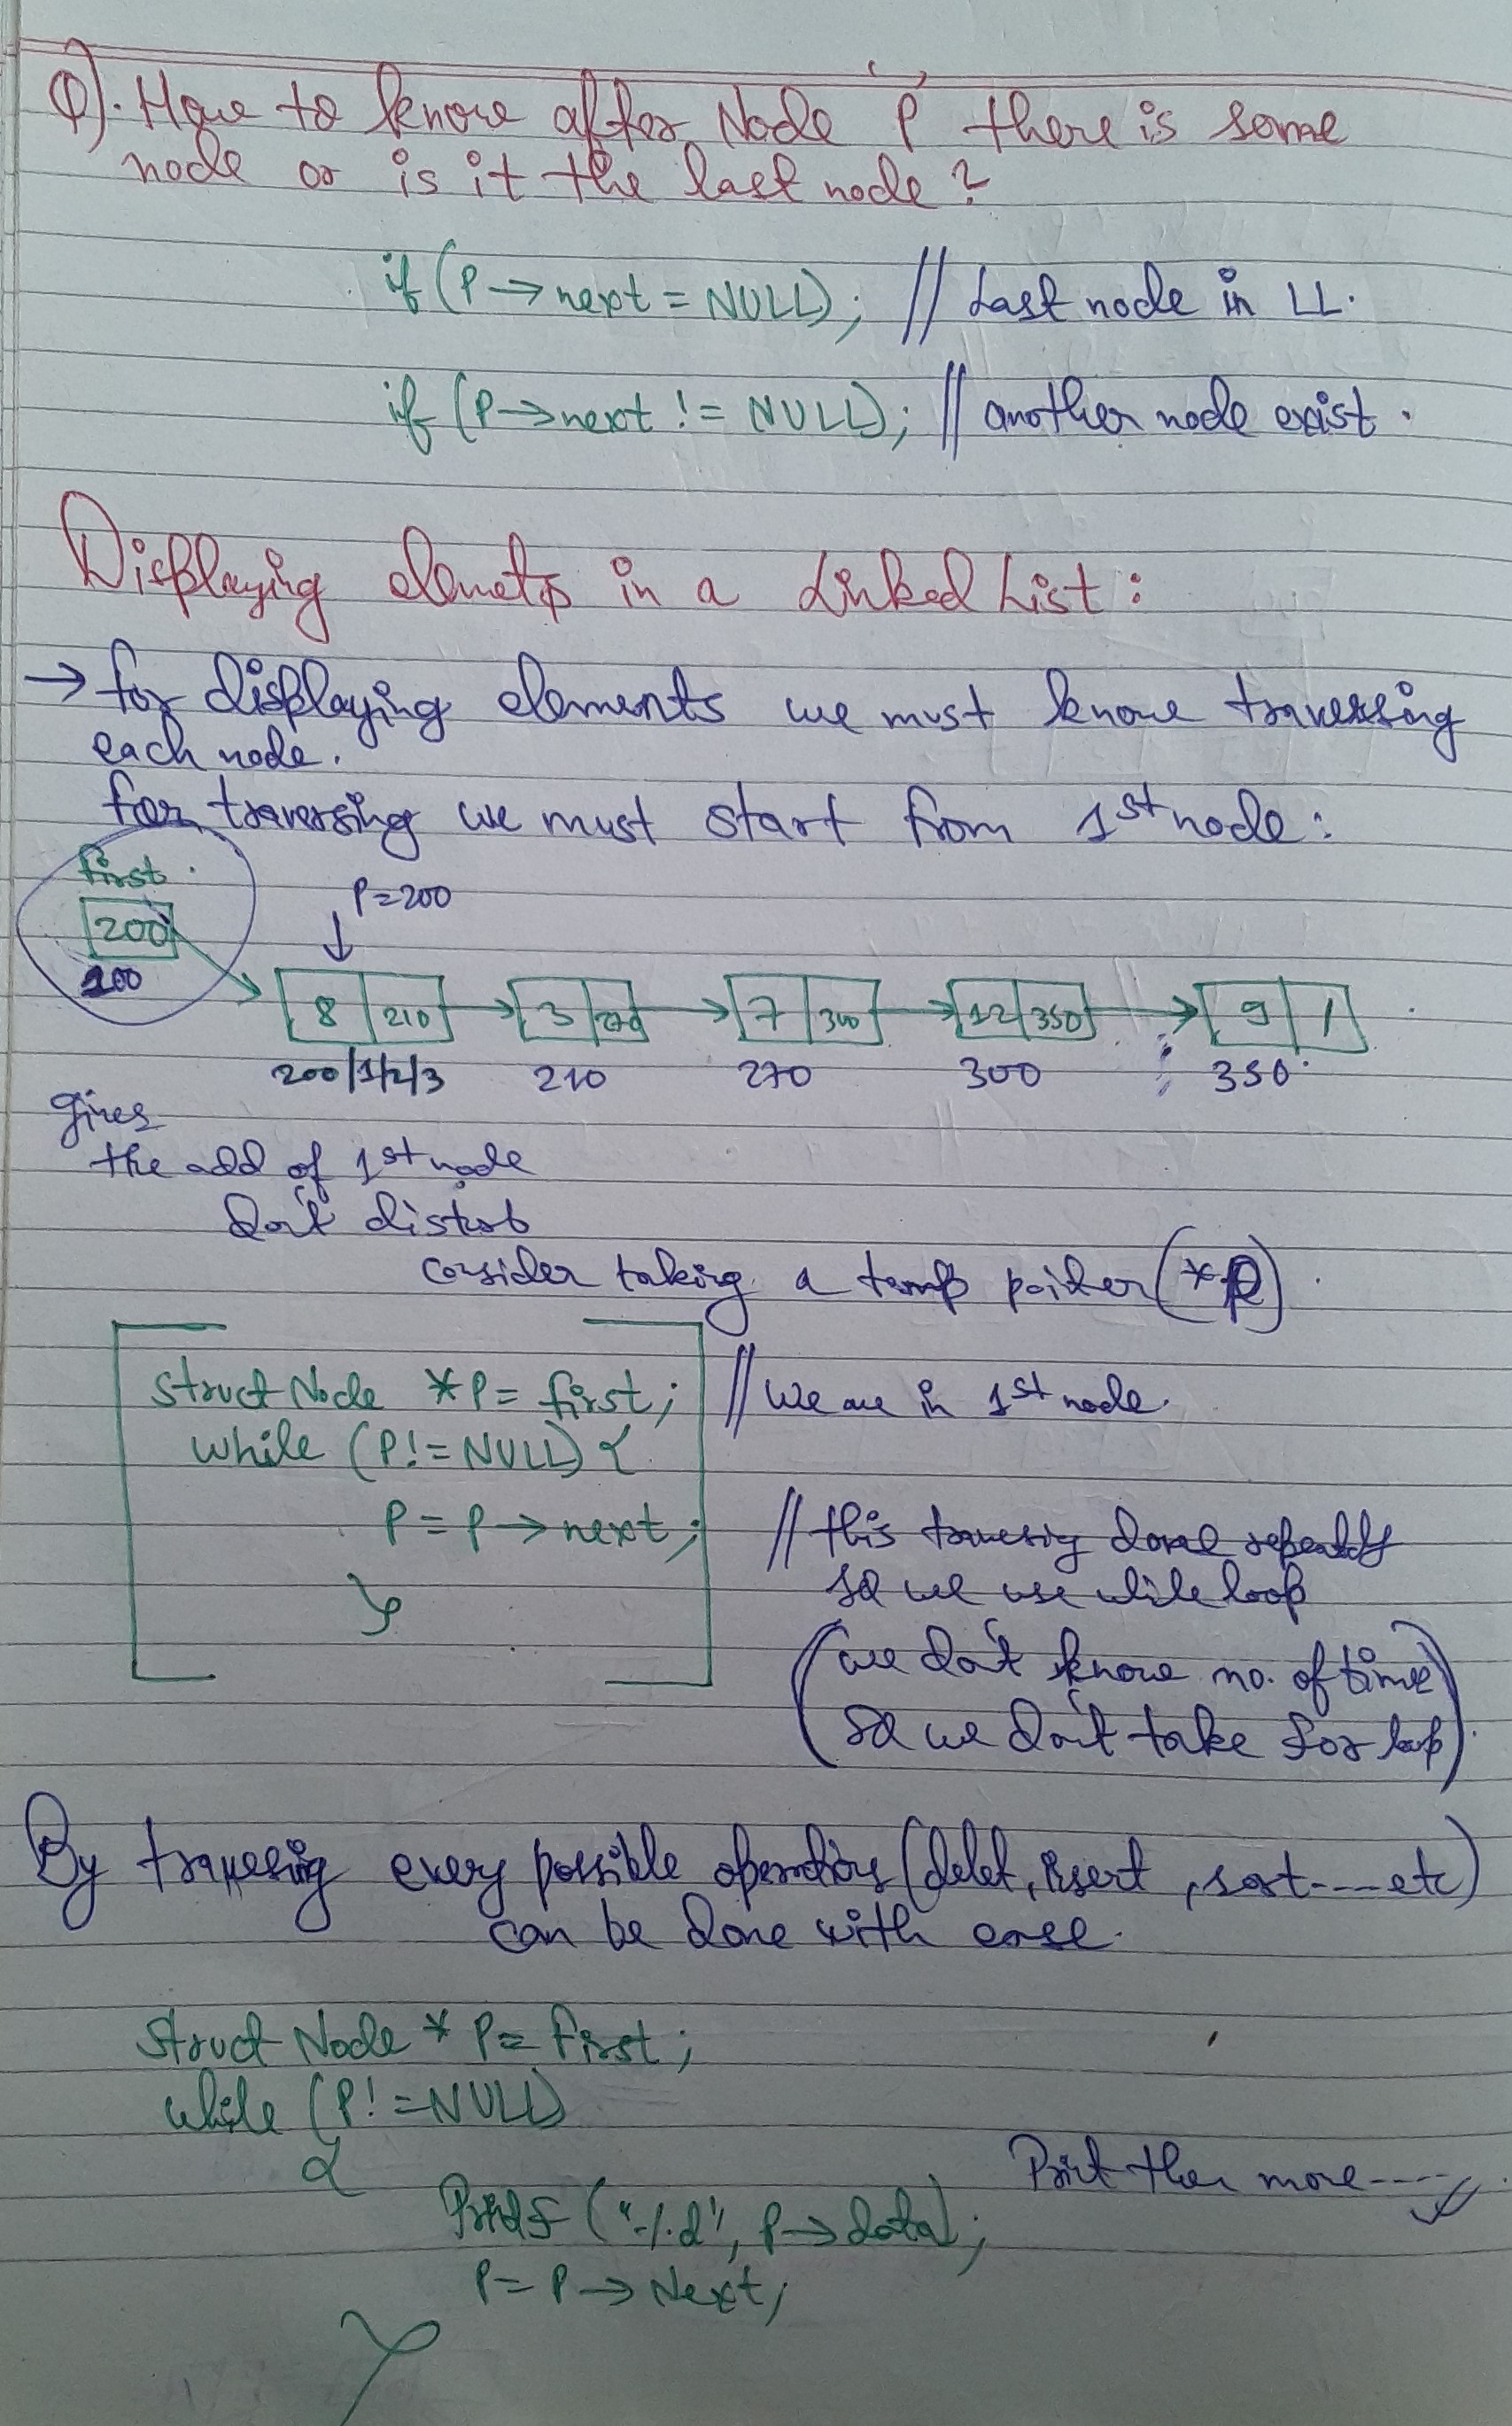 Q). How to know after Node P there is some
node or is it the last node?
if (P→next = NULL); // Last node in LL.
if (P→next != NULL); // another node exist.
Displaying elemets in a Linked List:
→ for displaying elements we must know traversing
each node.
for traversing we must start from 1st node:
first
P=200
200
100
8 210 3 270 7 300 12 350 9 /
200/1/2/3 210 270 300 350
gives
the add of 1st node
Don't distrob
consider taking a temp poiter (*P)
struct Node *P = first; // We are in 1st node.
while (P!=NULL) {
P = P→next; // this traversig done repeatdly
}
so we use while loop
(we don't know no. of time
so we don't take for loop)
By traversing every possible operations (delet, insert, sort----etc)
can be done with ease.
Struct Node * P = first;
while (P!=NULL)
{
Print then more----
Printf ("%d", P→data);
P = P→Next;
}